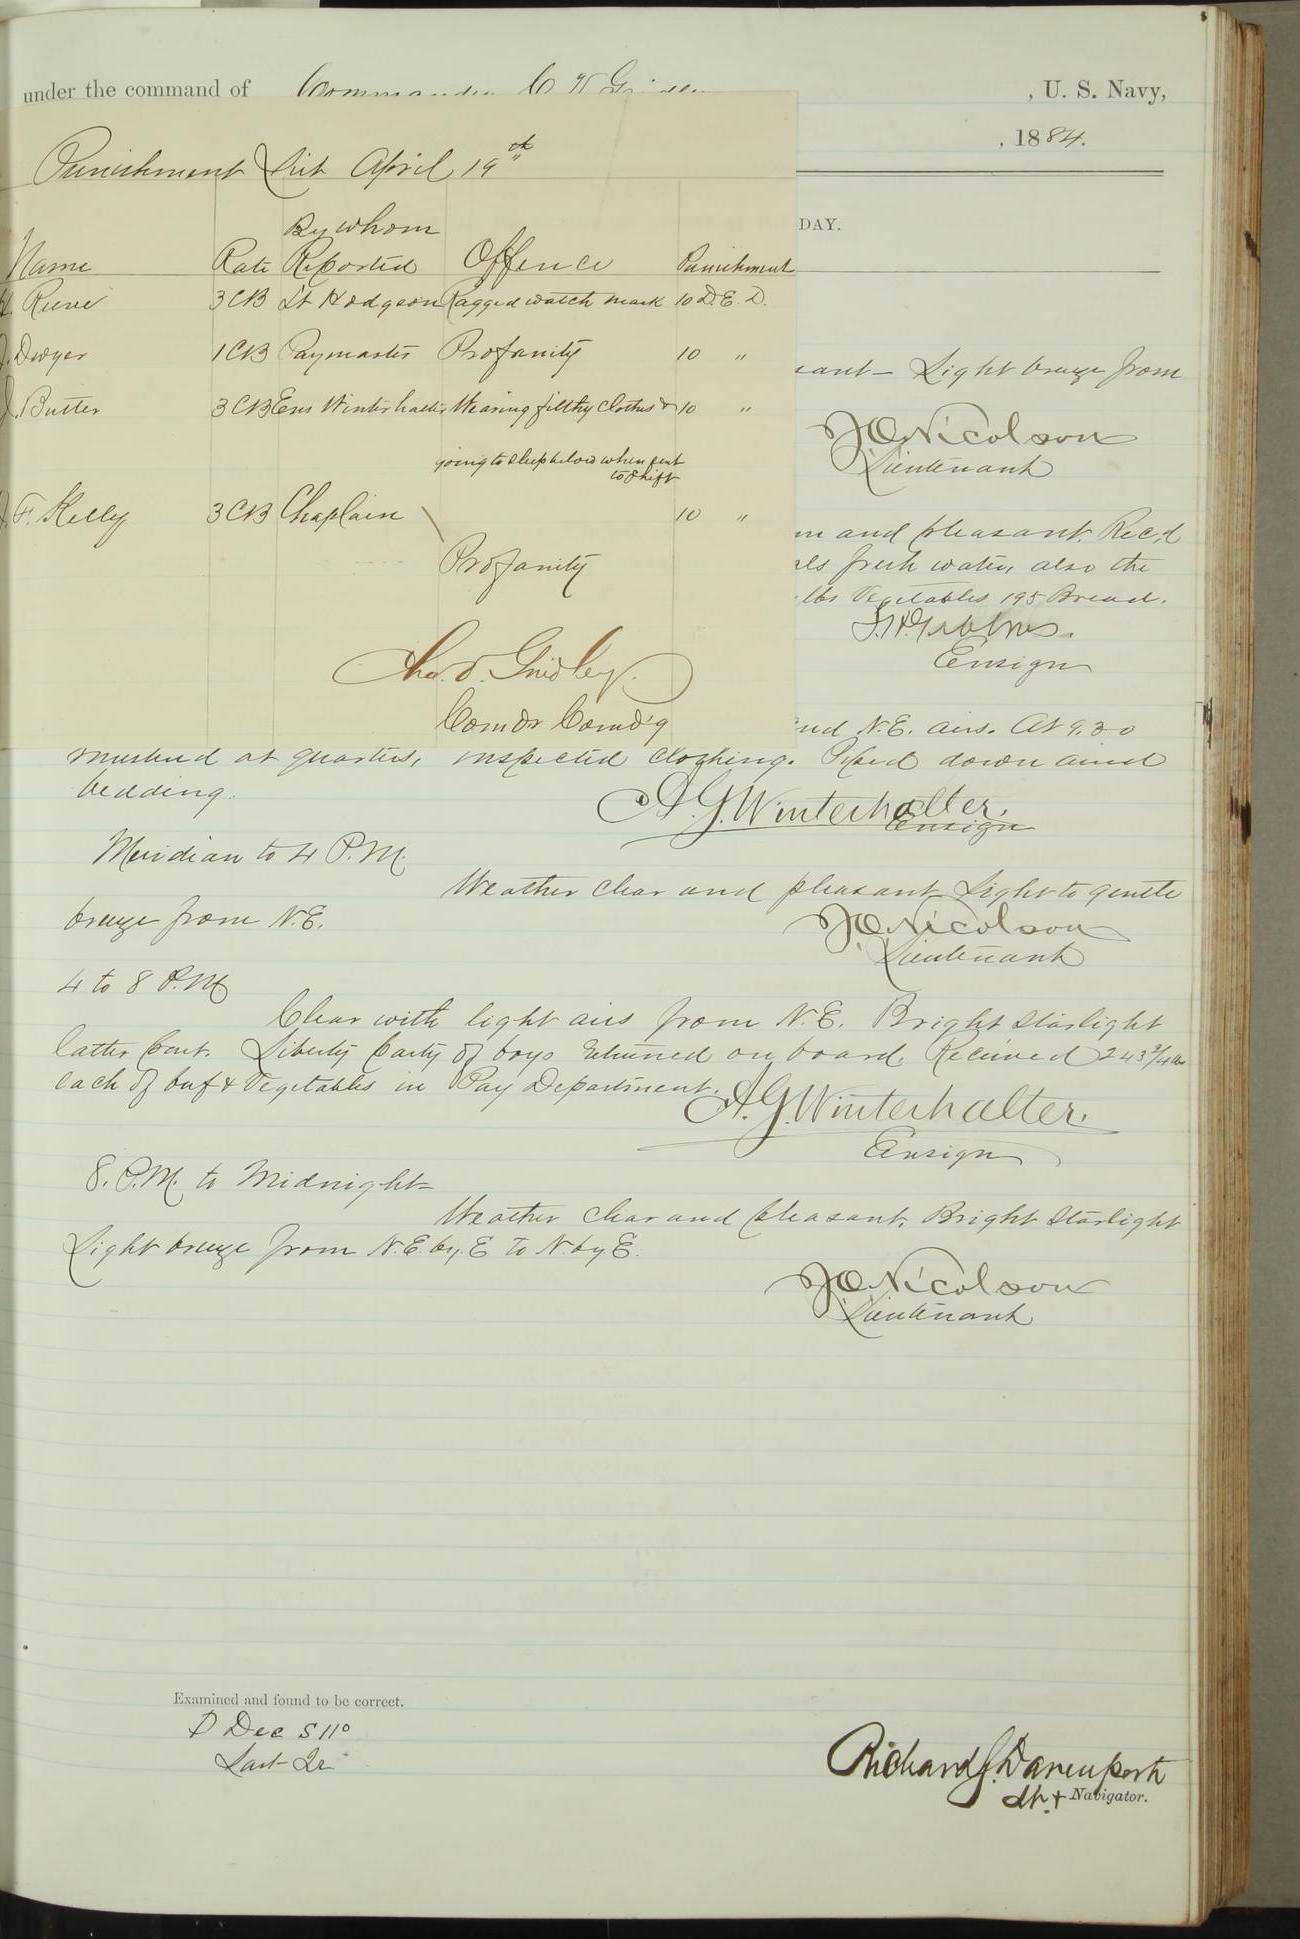 under the command of Commander C V Gridley , U. S. Navy,
, 1884.
DAY.
Punishment List April 19th
Name Rate By whom Reported Offence Punishment
Reeve 3CB Lt Hodgson Ragged watch mark 10 D.E.D.
J. Dwyer 1CB Paymaster Profanity 10 "
J. Butter 3CB Ens Winterhalter Wearing filthy clothes & 10 "
going to sleep below when sent
to shift
F. Kelly 3CB Chaplain 10 "
Profanity
Chas. V. Gridley.
Comdr Comd'g
sant– Light breeze from
J O Nicolson
Lieutenant
m and pleasant. Rec'd
als fresh water, also the
lbs Vegetables 195 Bread.
Ensign
and N.E. airs. At 9.30
mustered at quarters, inspected clothing. Piped down aired
bedding.
A. G. Winterhalter.
Ensign
Meridian to 4 P.M.
Weather clear and pleasant Light to gentle
breeze from N.E.
J O Nicolson
Lieutenant
4 to 8 P.M.
Clear with light airs from N.E. Bright starlight
latter part. Liberty party of boys returned on board. Received 243 3/4 lbs
each of beef & Vegetables in Pay Department.
A. G. Winterhalter.
Ensign
8. P.M. to Midnight–
Weather clear and pleasant. Bright starlight
Light breeze from N.E. by. E to N. by E.
J O Nicolson
Lieutenant
Examined and found to be correct.
D Dec S 11°
Last Qr
Richard G. Davenport
Lt. + Navigator.